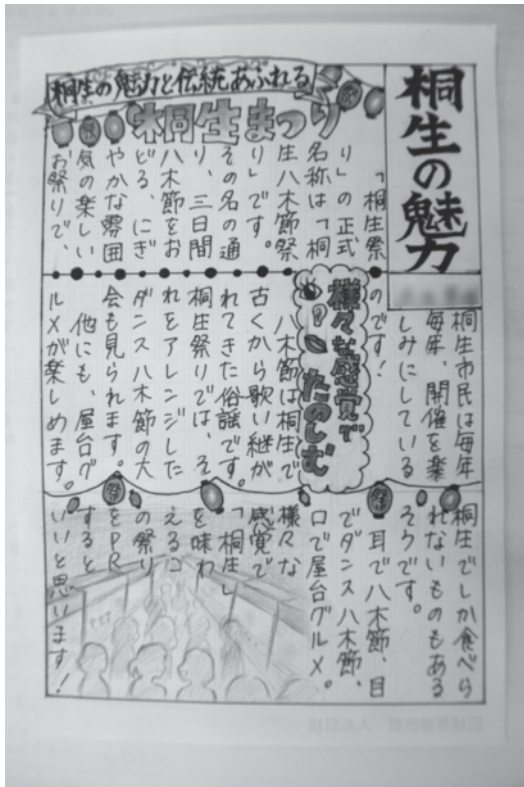 桐生の魅力
桐生の魅力と伝統あふれる
桐生まつり
「桐生祭
り」の正式
名称は「桐
生八木節祭
り」です。
その名の通
り、三日間
八木節をお
どる、にぎ
やかな雰囲
気の楽しい
お祭りで、
桐生市民は毎年
毎年、開催を楽
しみにしている
のです!
様々な感覚で
たのしむ
八木節は桐生で
古くから歌い継が
れてきた俗謡です。
桐生祭りでは、そ
れをアレンジした
ダンス八木節の大
会も見られます。
他にも、屋台グ
ルメが楽しめます。
祭
祭
桐生でしか食べら
れないものもある
そうです。
耳で八木節、目
でダンス八木節、
口で屋台グルメ。
様々な
感覚で
「桐生」
を味わ
えるこ
の祭り
をPR
すると
いいと思います!